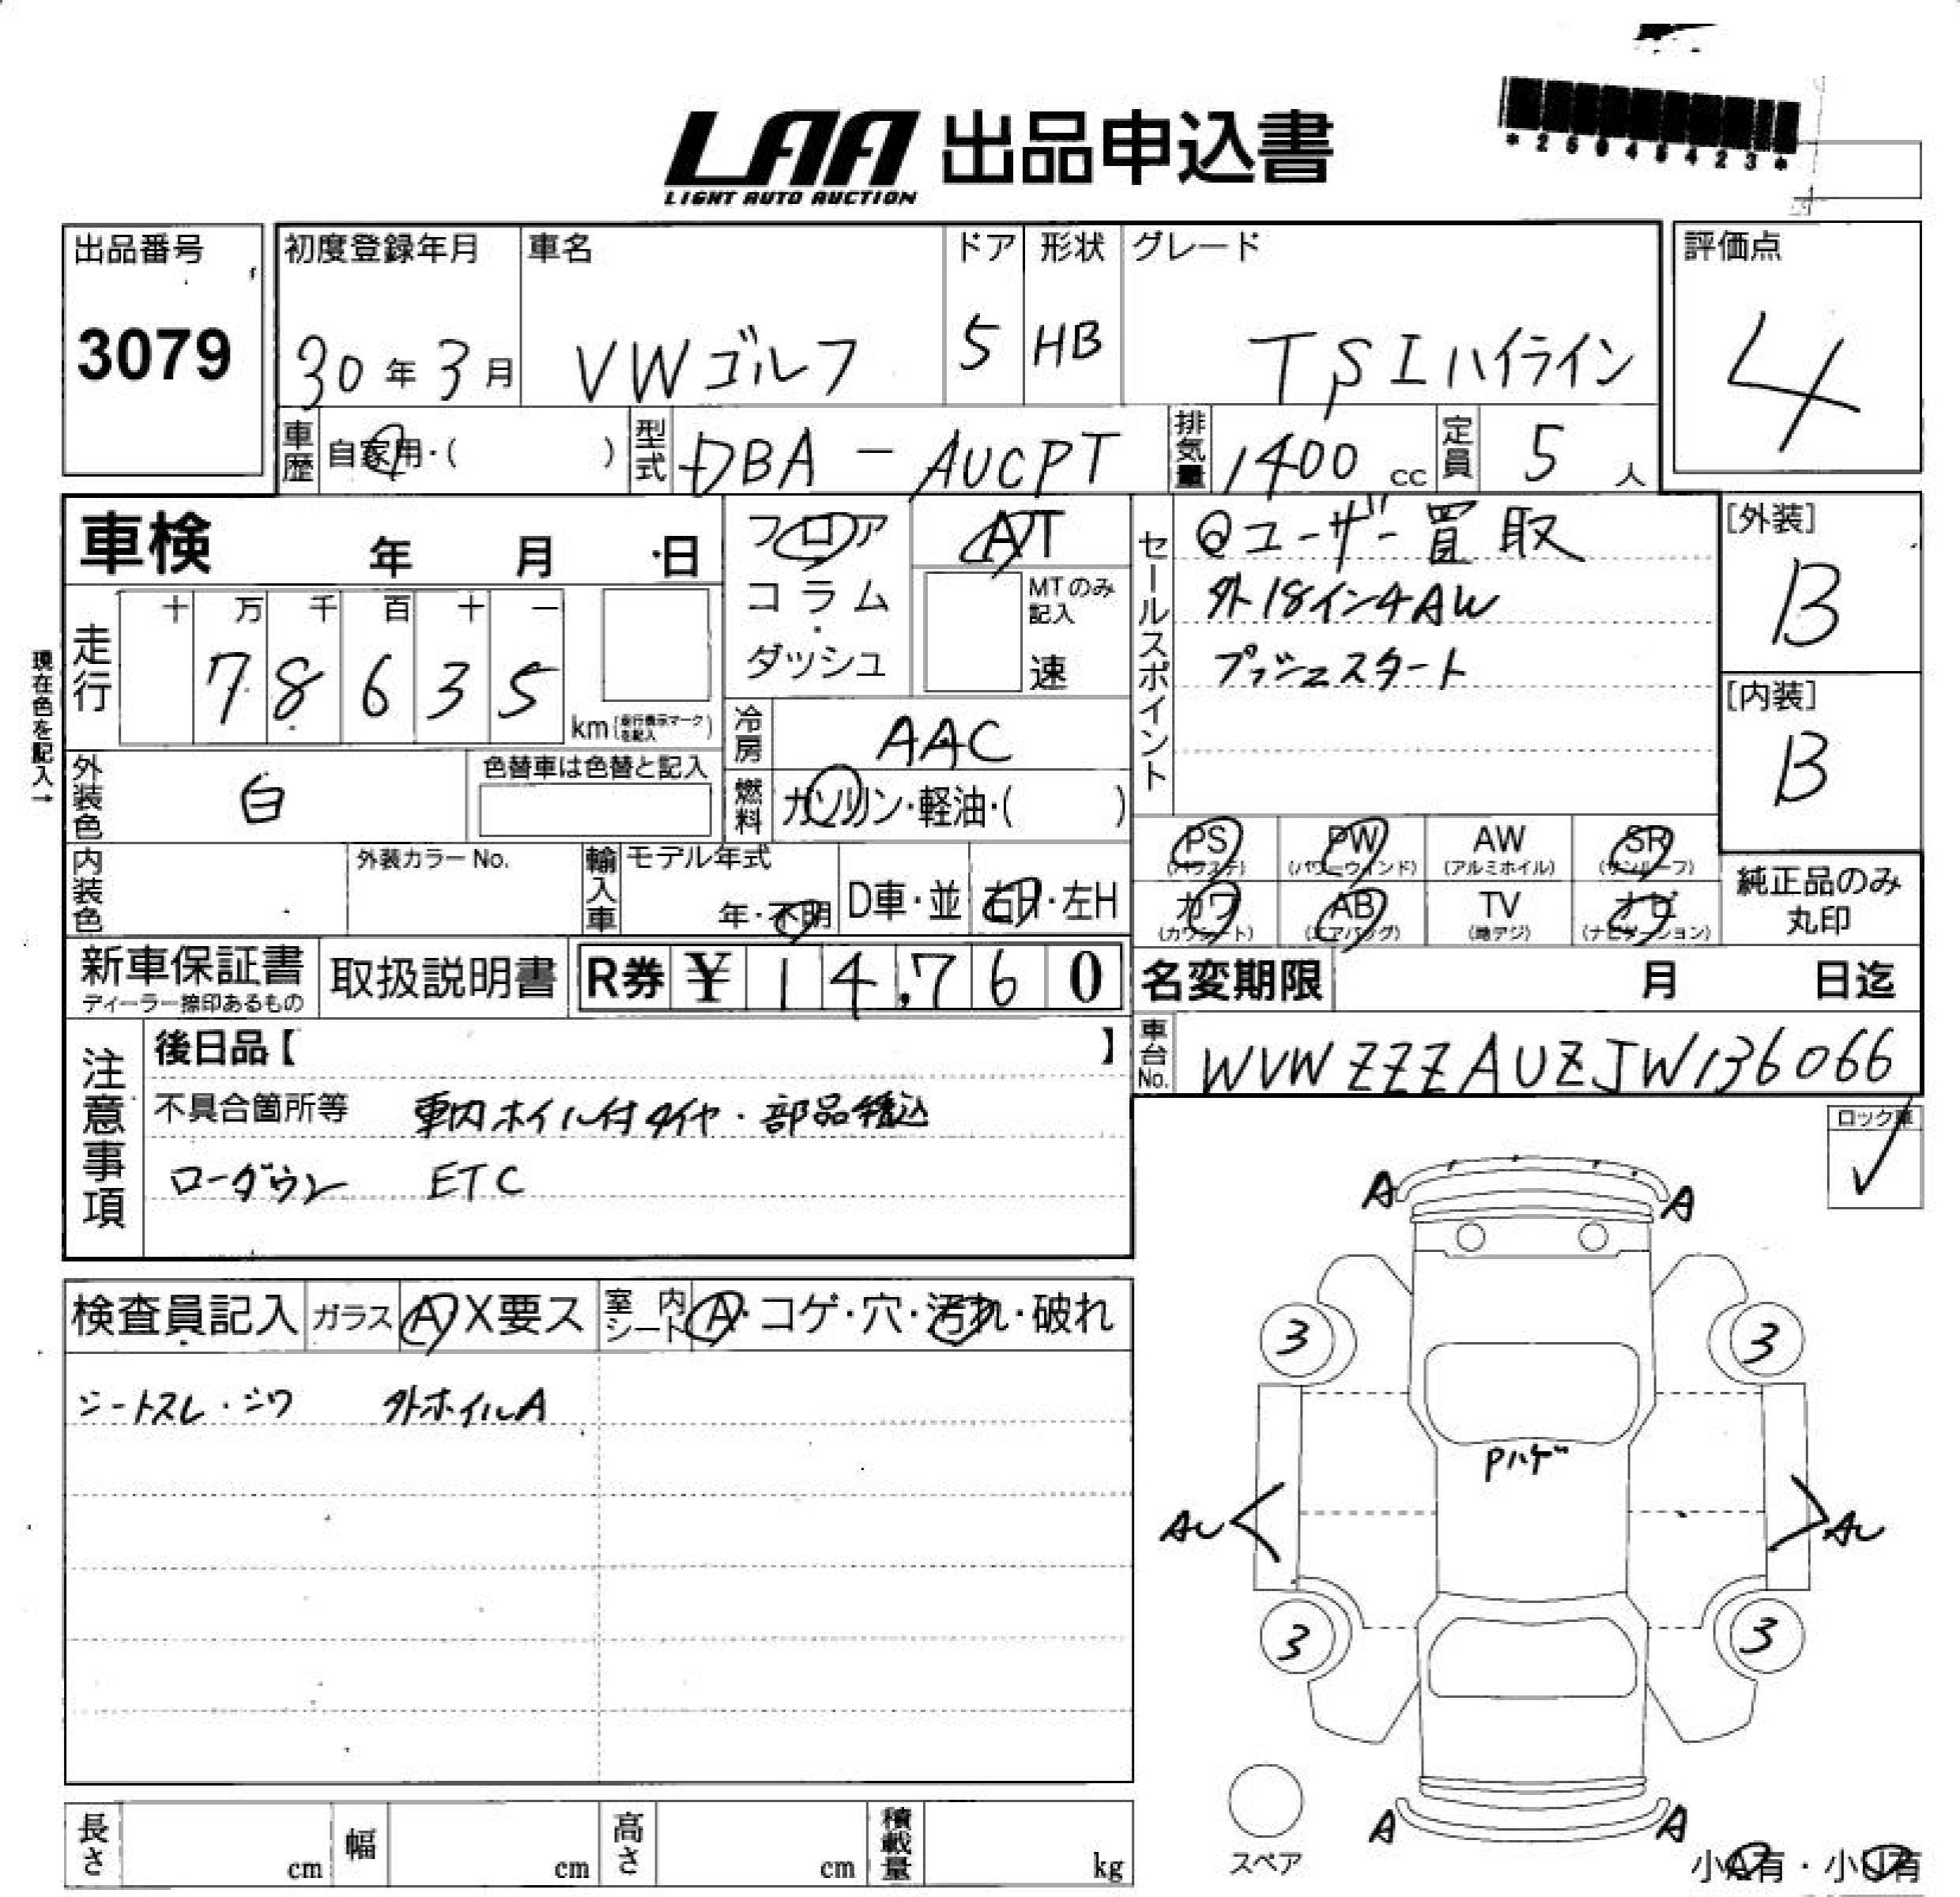 *25045423*
LAA 出品申込書
LIGHT AUTO AUCTION
出品番号
3079
初度登録年月
30年3月
車名
VWゴルフ
ドア
5
形状
HB
グレード
TSIハイライン
評価点
4
車歴 自家用・( )
型式 DBA-AUCPT
排気量 1400 cc
定員 5 人
車検 年 月 日
フロア
コラム
・
ダッシュ
AT
MTのみ
記入
速
セールスポイント
@ユーザー買取
外18インチAW
プッシュスタート
[外装]
B
[内装]
B
現在色を記入→
走行
十 万 千 百 十 一
7 8 6 3 5
km(走行表示マークを記入)
冷房 AAC
燃料 ガソリン・軽油・( )
外装色 白
色替車は色替と記入
内装色
外装カラーNo.
輸入車
モデル年式
年・不明
D車・並
右H・左H
PS
(パワステ)
PW
(パワーウィンド)
AW
(アルミホイル)
SR
(サンルーフ)
カワ
(カワシート)
AB
(エアバッグ)
TV
(地デジ)
ナビ
(ナビゲーション)
純正品のみ
丸印
新車保証書
ディーラー捺印あるもの
取扱説明書
R券 ¥14,760
名変期限 月 日迄
車台No. WVWZZZAUZJW136066
注意事項
後日品【 】
不具合箇所等 車内ホイル付タイヤ・部品積込
ローダウン ETC
ロック車
✓
検査員記入
ガラス A X要ス
室内シート A・コゲ・穴・汚れ・破れ
シートスレ・シワ 外ホイルA
A A
3 3
Pハゲ
AU AU
3 3
A A
スペア
小A有・小U有
長さ cm
幅 cm
高さ cm
積載量 kg